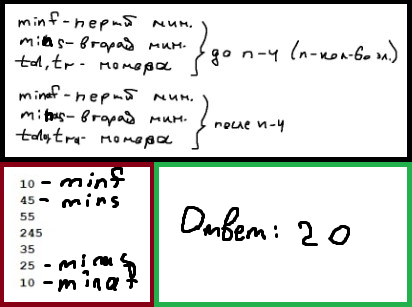 minf - первый мин.
mins - второй мин.
tal, tr - номера
} до n-4 (n-кол-во эл.)
minaf - первый мин.
minas - второй мин.
номера
} после n-4
10 - minf
45 - mins
55
245
35
25 - minas
10 - minaf
Ответ: 20